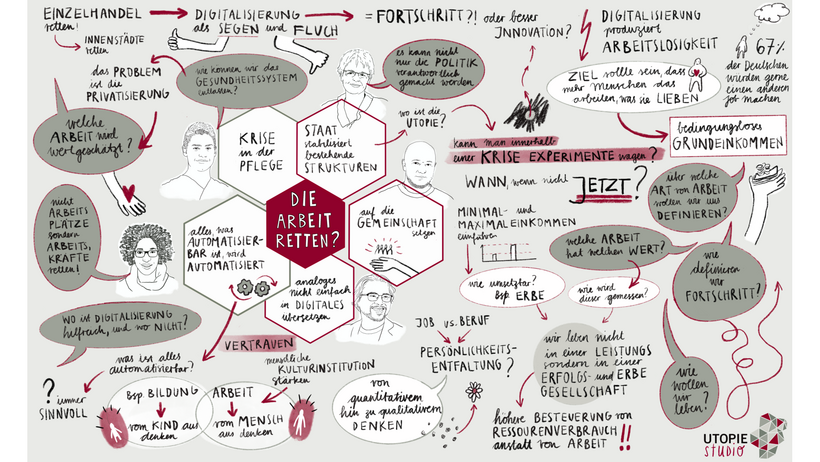 EINZELHANDEL
retten!
INNENSTÄDTE
retten
DIGITALISIERUNG
als SEGEN und FLUCH
= FORTSCHRITT?! oder besser
INNOVATION?
DIGITALISIERUNG
produziert
ARBEITSLOSIGKEIT
67%
der Deutschen
würden gerne
einen anderen
job machen
das PROBLEM
ist die
PRIVATISIERUNG
wie können wir das
GESUNDHEITSSYSTEM
entlassen?
es kann nicht
nur die POLITIK
verantwortlich
gemacht werden
ZIEL sollte sein, dass
mehr Menschen das
arbeiten, was sie LIEBEN
welche
ARBEIT wird
wertgeschätzt?
KRISE
in der
PFLEGE
STAAT
stabilisiert
bestehende
STRUKTUREN
wo ist die
UTOPIE?
bedingungsloses
GRUNDEINKOMMEN
kann man innerhalb
einer KRISE EXPERIMENTE wagen?
WANN, wenn nicht JETZT?
über welche
ART von ARBEIT
wollen wir uns
DEFINIEREN?
nicht
ARBEITS
PLÄTZE
sondern
ARBEITS,
KRÄFTE
retten!
DIE
ARBEIT
RETTEN?
auf die
GEMEINSCHAFT
setzen
MINIMAL- und
MAXIMALEINKOMMEN
einführen
alles, was
AUTOMATISIER-
BAR ist, wird
AUTOMATISIERT
welche ARBEIT
hat welchen WERT?
analoges
nicht einfach
in DIGITALES
übersetzen
wie umsetzbar?
Bsp ERBE
wie wird
dieser gemessen?
wie
definieren
wir
FORTSCHRITT?
WO ist DIGITALISIERUNG
hilfreich, und wo NICHT?
VERTRAUEN
menschliche
KULTURINSTITUTION
stärken
JOB vs. BERUF
PERSÖNLICHKEITS-
ENTFALTUNG?
wir leben nicht
in einer LEISTUNGS
sondern in einer
ERFOLGS- und ERBE
GESELLSCHAFT
was ist alles
automatisierbar?
? immer
SINNVOLL
Bsp BILDUNG
vom KIND aus
denken
ARBEIT
vom MENSCH
aus denken
von
quantitativem
hin zu qualitativem
DENKEN
wie
wollen
wir
leben?
höhere BESTEUERUNG von
RESSOURCENVERBRAUCH
anstatt von ARBEIT !!
UTOPIE
STUDIO